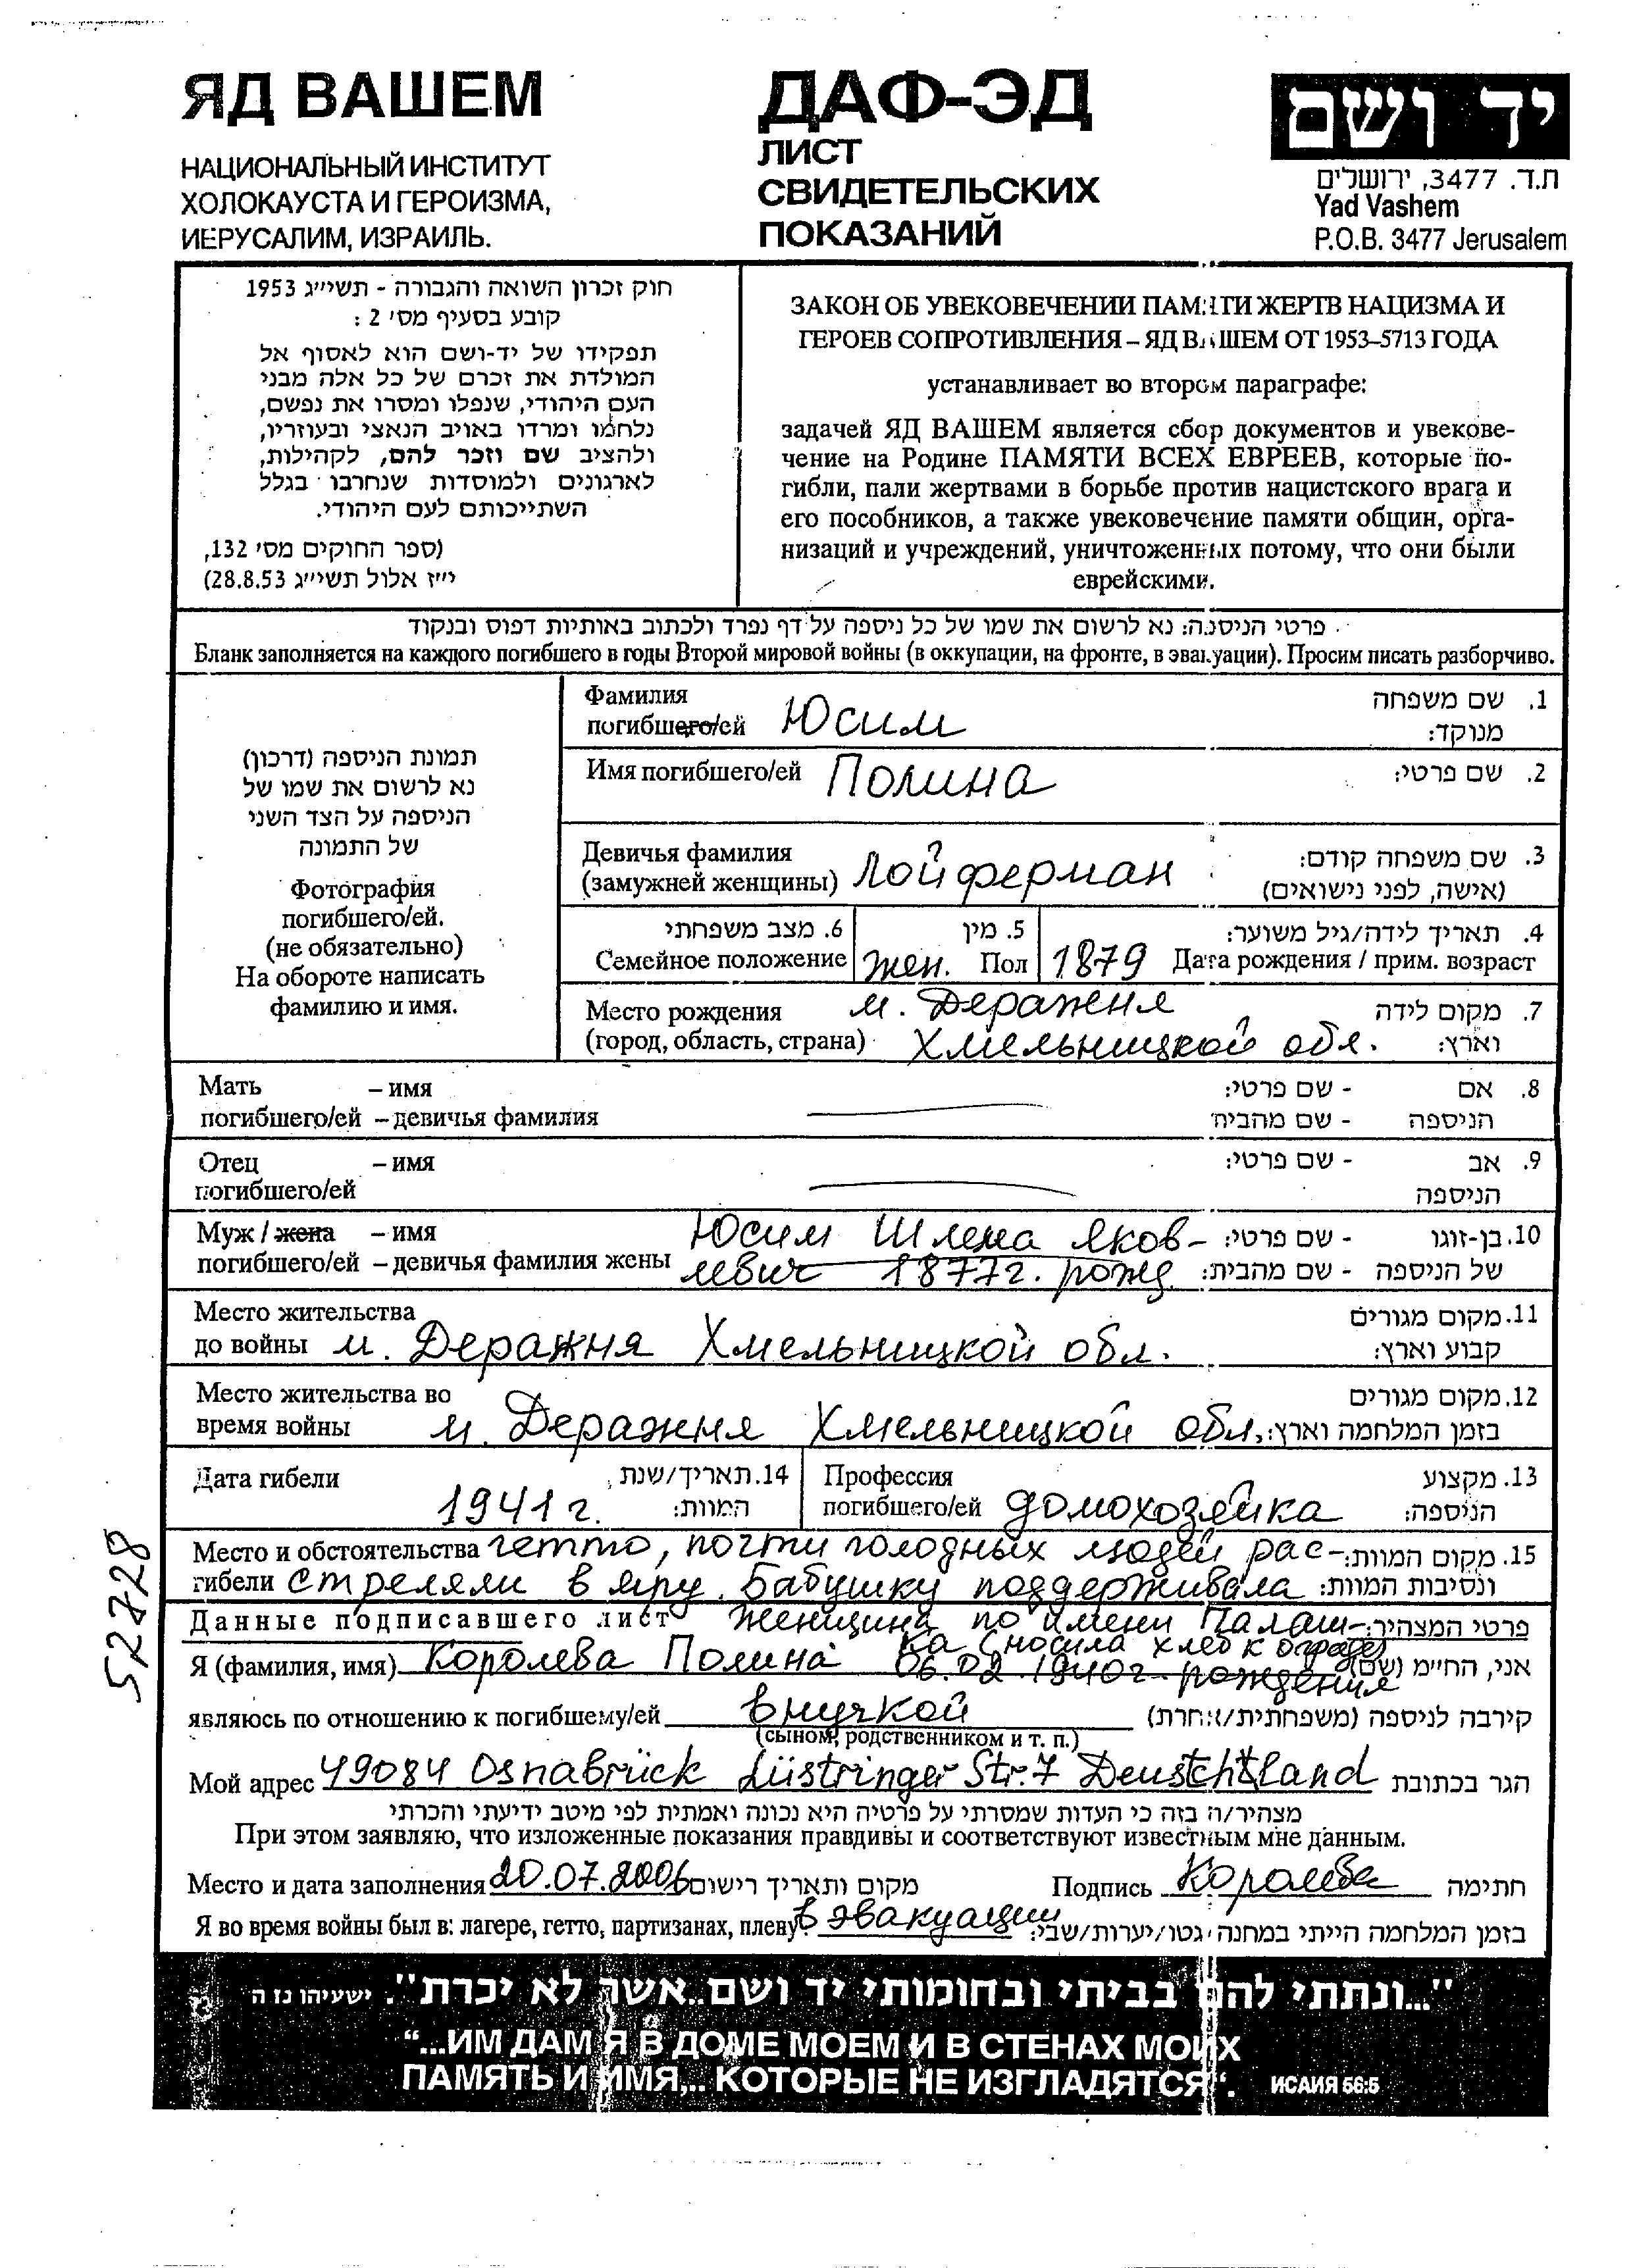 ЯД ВАШЕМ
НАЦИОНАЛЬНЫЙ ИНСТИТУТ
ХОЛОКАУСТА И ГЕРОИЗМА,
ИЕРУСАЛИМ, ИЗРАИЛЬ.
ДАФ-ЭД
ЛИСТ
СВИДЕТЕЛЬСКИХ
ПОКАЗАНИЙ
יד ושם
ת.ד. 3477, ירושלים
Yad Vashem
P.O.B. 3477 Jerusalem
חוק זכרון השואה והגבורה - תשי״ג 1953
קובע בסעיף מס׳ 2 :
תפקידו של יד-ושם הוא לאסוף אל
המולדת את זכרם של כל אלה מבני
העם היהודי, שנפלו ומסרו את נפשם,
נלחמו ומרדו באויב הנאצי ובעוזריו,
ולהציב שם וזכר להם, לקהילות,
לארגונים ולמוסדות שנחרבו בגלל
השתייכותם לעם היהודי.
(ספר החוקים מס׳ 132,
י״ז אלול תשי״ג 28.8.53)
ЗАКОН ОБ УВЕКОВЕЧЕНИИ ПАМЯТИ ЖЕРТВ НАЦИЗМА И
ГЕРОЕВ СОПРОТИВЛЕНИЯ – ЯД ВАШЕМ ОТ 1953–5713 ГОДА
устанавливает во втором параграфе:
задачей ЯД ВАШЕМ является сбор документов и увекове-
чение на Родине ПАМЯТИ ВСЕХ ЕВРЕЕВ, которые по-
гибли, пали жертвами в борьбе против нацистского врага и
его пособников, а также увековечение памяти общин, орга-
низаций и учреждений, уничтоженных потому, что они были
еврейскими.
פרטי הניספה: נא לרשום את שמו של כל ניספה על דף נפרד ולכתוב באותיות דפוס ובנקוד
Бланк заполняется на каждого погибшего в годы Второй мировой войны (в оккупации, на фронте, в эвакуации). Просим писать разборчиво.
תמונת הניספה (דרכון)
נא לרשום את שמו של
הניספה על הצד השני
של התמונה
Фотография
погибшего/ей.
(не обязательно)
На обороте написать
фамилию и имя.
Фамилия 1. שם משפחה
погибшего/ей Юсим מנוקד:
Имя погибшего/ей Полина 2. שם פרטי:
Девичья фамилия 3. שם משפחה קודם:
(замужней женщины) Лойферман (אישה, לפני נישואים)
6. מצב משפחתי 5. מין 4. תאריך לידה/גיל משוער:
Семейное положение жен. Пол 1879 Дата рождения / прим. возраст
Место рождения м. Деражня 7. מקום לידה
(город, область, страна) Хмельницкой обл. וארץ:
Мать – имя 8. אם - שם פרטי:
погибшего/ей – девичья фамилия הניספה - שם מהבית
Отец – имя 9. אב - שם פרטי:
погибшего/ей הניספה
Муж / жена – имя Юсим Шлема Яков- 10. בן-זוגו - שם פרטי:
погибшего/ей – девичья фамилия жены левич 1877г. рожд. של הניספה - שם מהבית:
Место жительства 11. מקום מגורים
до войны м. Деражня Хмельницкой обл. קבוע וארץ:
Место жительства во 12. מקום מגורים
время войны м. Деражня Хмельницкой обл. בזמן המלחמה וארץ:
Дата гибели 14. תאריך/שנת Профессия 13. מקצוע
1941 г. המוות: погибшего/ей домохозяйка הניספה:
Место и обстоятельства гетто, почти голодных людей рас- 15. מקום המוות:
гибели стреляли в яру. Бабушку поддерживала ונסיבות המוות:
Данные подписавшего лист женщина по имени Палаш- פרטי המצהיר:
ка (носила хлеб к ограде)
Я (фамилия, имя) Королева Полина 06.02 1940г рождения אני, החיימ (שם)
являюсь по отношению к погибшему/ей внучкой קירבה לניספה (משפחתית/אחרת)
(сыном, родственником и т. п.)
Мой адрес 49084 Osnabrück Lüstringer Str. 7 Deustchtland הגר בכתובת
מצהיר/ה בזה כי העדות שמסרתי על פרטיה היא נכונה ואמתית לפי מיטב ידיעתי והכרתי
При этом заявляю, что изложенные показания правдивы и соответствуют известным мне данным.
Место и дата заполнения 20.07.2006 מקום ותאריך רישום Подпись Королева חתימה
Я во время войны был в: лагере, гетто, партизанах, плену? в эвакуации בזמן המלחמה הייתי במחנה/גטו/יערות/שבי:
52728
"...ונתתי להם בביתי ובחומותי יד ושם..אשר לא יכרת". ישעיהו נז ה
“...ИМ ДАМ Я В ДОМЕ МОЕМ И В СТЕНАХ МОИХ
ПАМЯТЬ И ИМЯ... КОТОРЫЕ НЕ ИЗГЛАДЯТСЯ“. ИСАИЯ 56:5